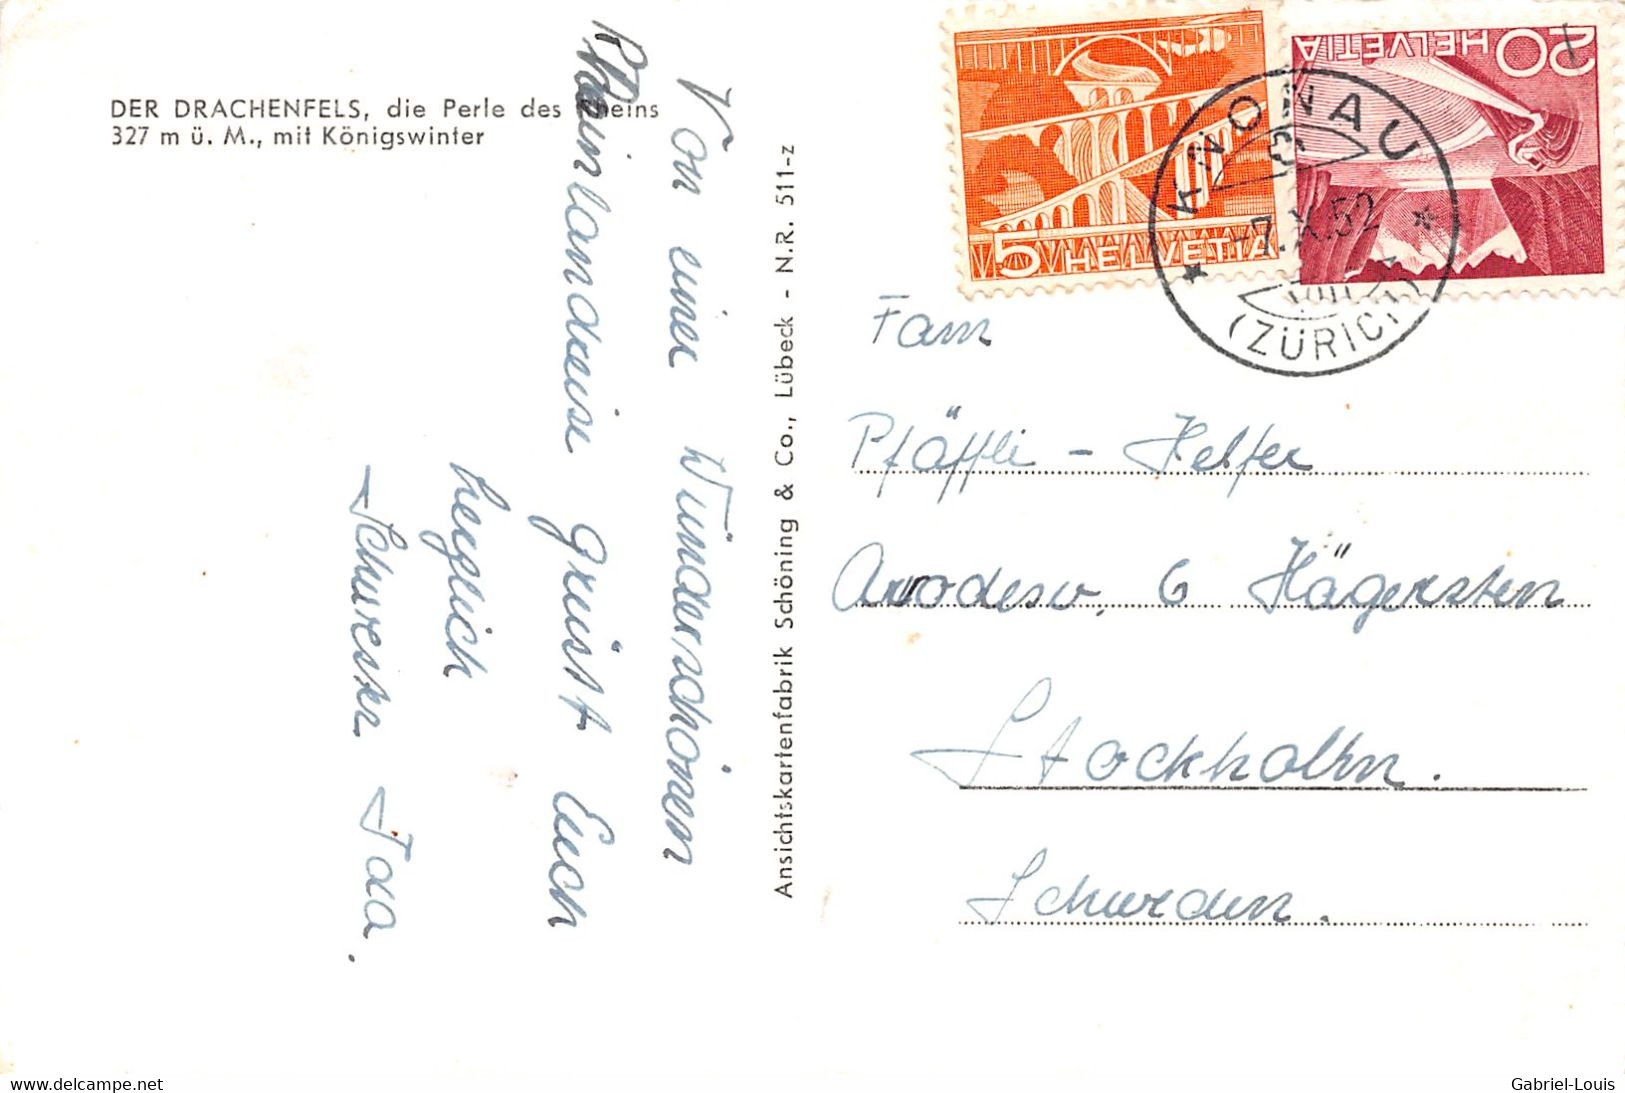 DER DRACHENFELS, die Perle des Rheins
327 m ü. M., mit Königswinter
Von einer Wünderschönen
Rheinlandreise grüsst Euch
herzlich
Schwester Ida.
Ansichtskartenfabrik Schöning & Co., Lübeck - N.R. 511-z
5 HELVETIA
20 HELVETIA
KNONAU
-7.X.52
(ZÜRICH)
Fam
Pfäffli - Helfer
6 Hägersten
Stockholm.
Schweden.
www.delcampe.net
Gabriel-Louis